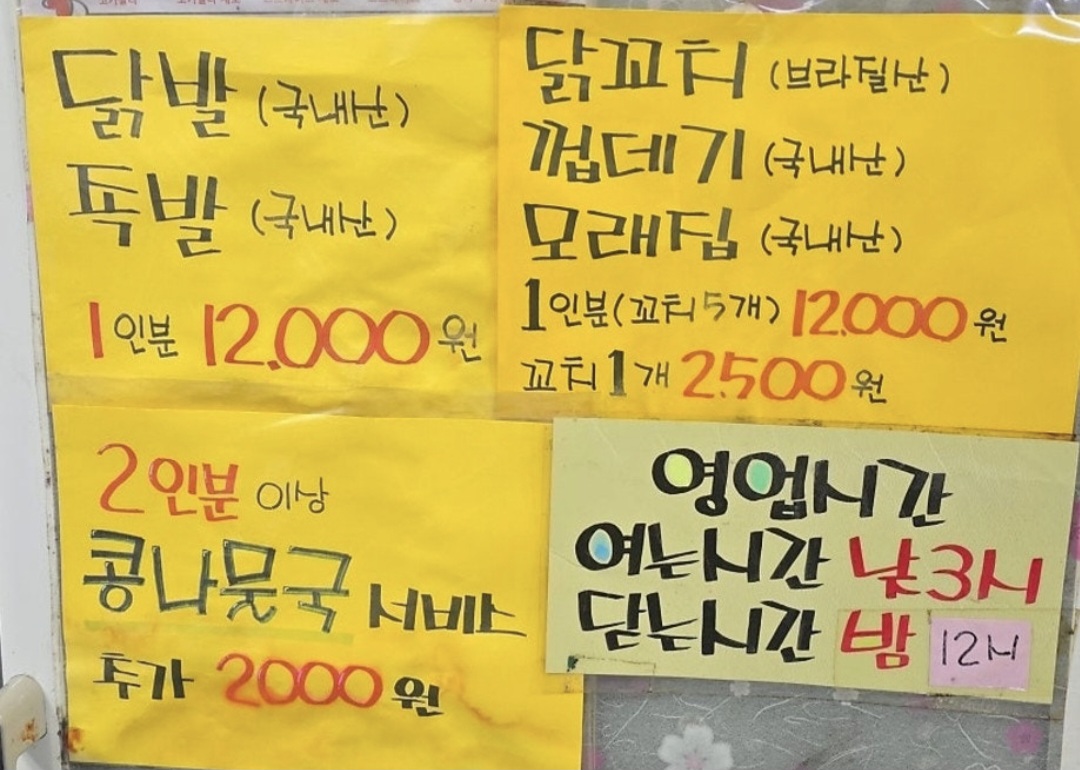 닭발 (국내산)
족발 (국내산)
1인분 12,000원
닭꼬치 (브라질산)
껍데기 (국내산)
모래집 (국내산)
1인분(꼬치5개) 12,000원
꼬치1개 2,500원
2인분 이상
콩나물국 서비스
추가 2000원
영업시간
여는시간 낮3시
닫는시간 밤 12시